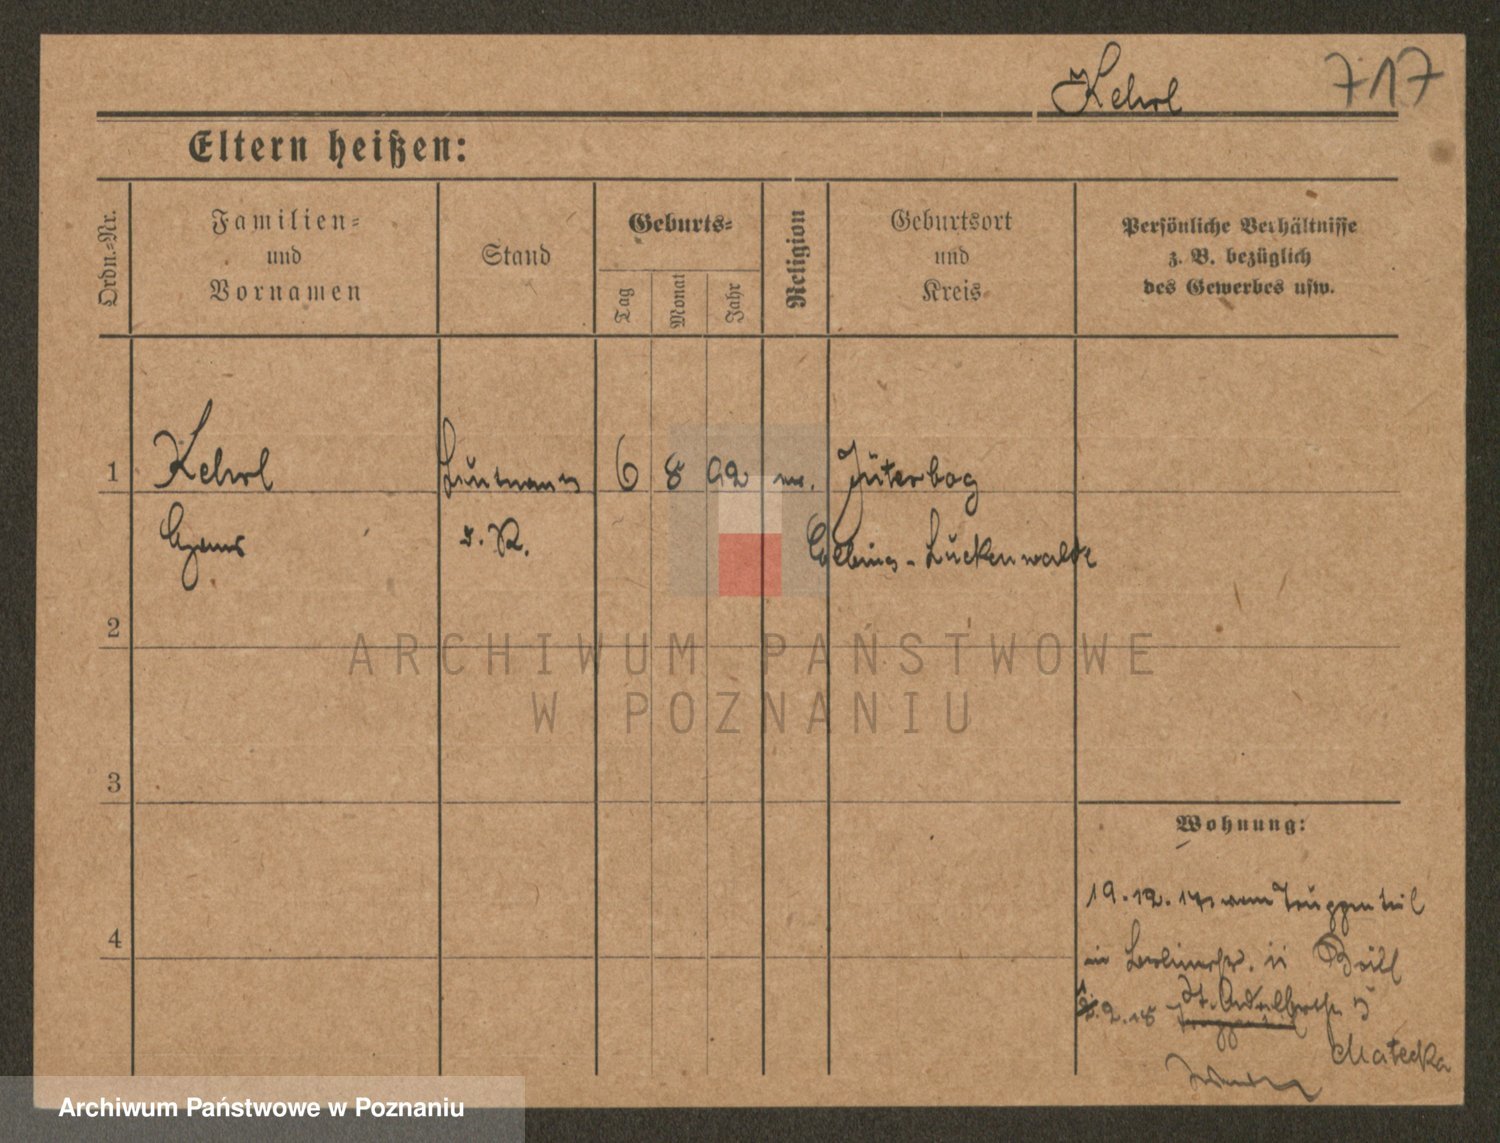 Kehrl 717
Eltern heißen:
Ordn.-Nr.
Familien-
und
Vornamen
Stand
Geburts-
Tag
Monat
Jahr
Religion
Geburtsort
und
Kreis
Persönliche Verhältnisse
z. B. bezüglich
des Gewerbes usw.
1 Kehrl Leutnant 6 8 92 ev. Jüterbog
Hans d. R. Luckenwalde
2
ARCHIWUM PAŃSTWOWE
W POZNANIU
3
Wohnung:
4
19.12.17 vom Truppenteil
in Berlinerstr. 11
.2.18 St. Adalbertstr. 5
Matecka
Archiwum Państwowe w Poznaniu